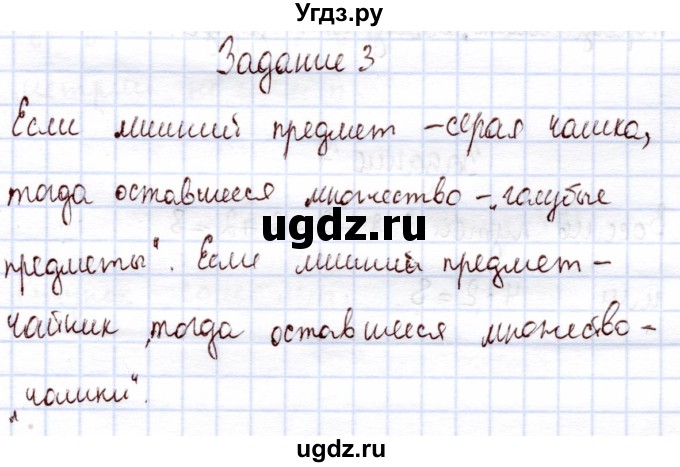 Угдз.ру
Задание 3
Если лишний предмет – серая чашка,
тогда оставшееся множество – „голубые
ugdz.ru
предметы“. Если лишний предмет –
чайник, тогда оставшееся множество –
ugdz.ru
„чашки“.
ugdz.ru